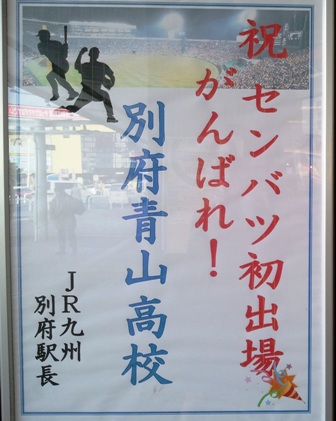 祝センバツ初出場
がんばれ!
別府青山高校
JR九州
別府駅長